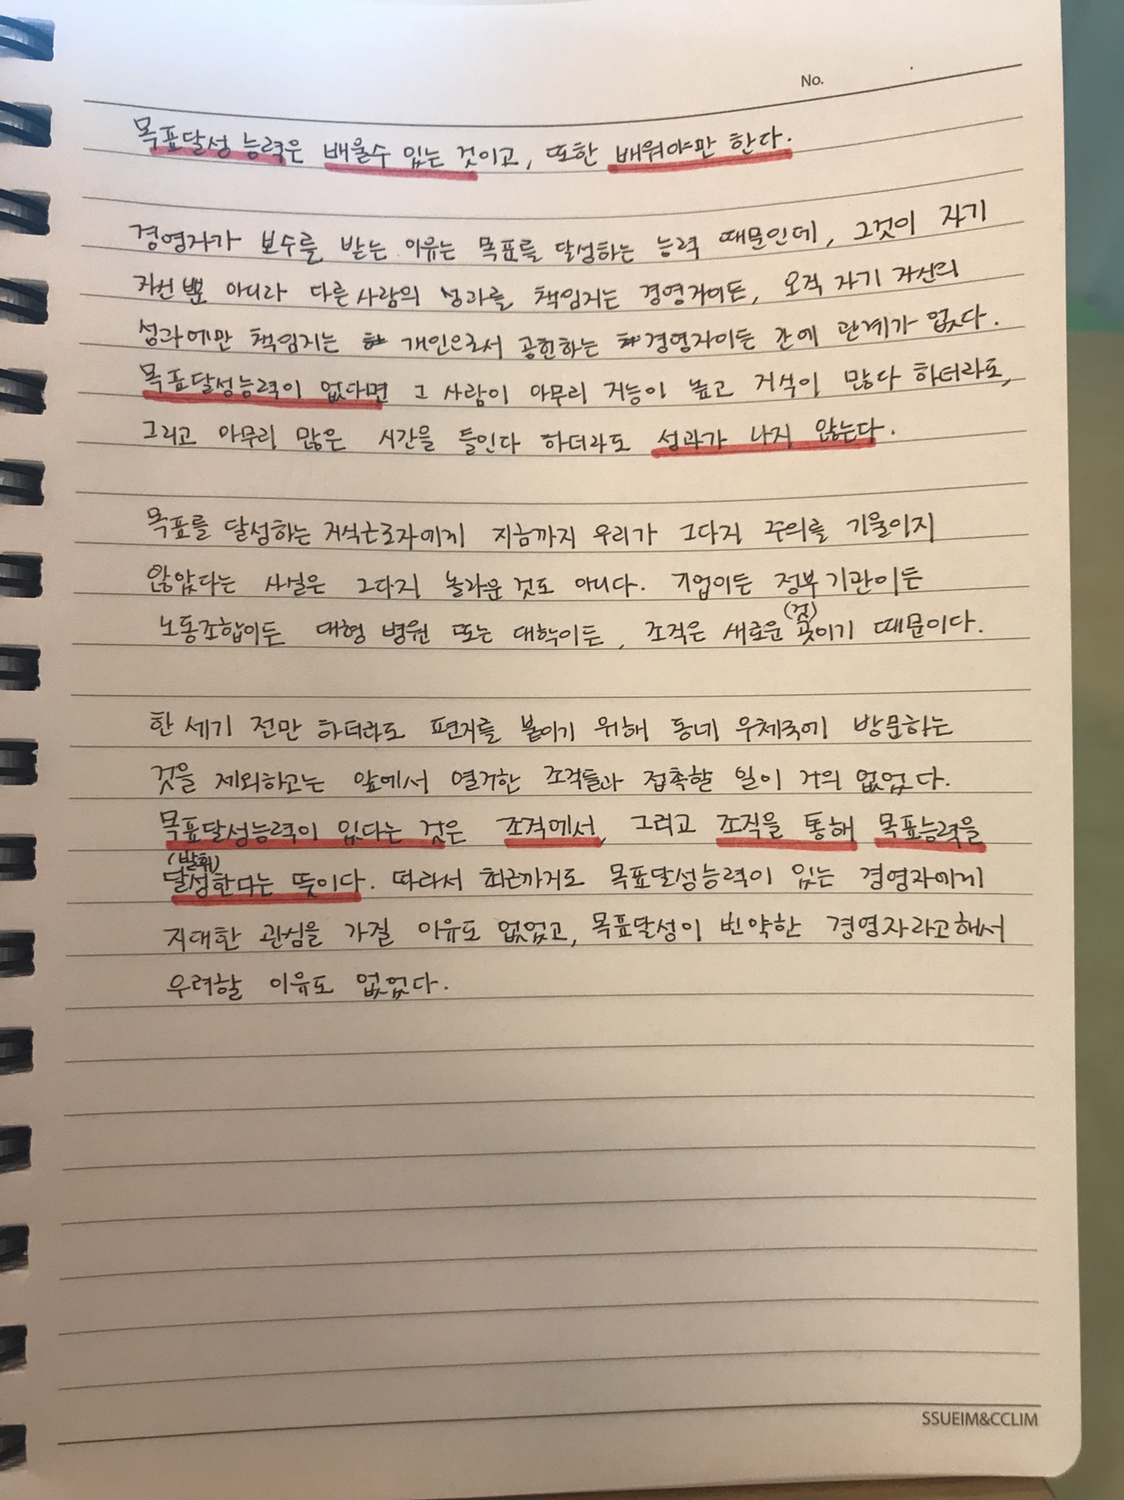 No.
목표달성 능력은 배울수 있는 것이고, 또한 배워야만 한다.
경영자가 보수를 받는 이유는 목표를 달성하는 능력 때문인데, 그것이 자기
자신 뿐 아니라 다른 사람의 성과를 책임지는 경영자이든, 오직 자기 자신의
성과에만 책임지는 개인으로서 공헌하는 경영자이든 간에 관계가 없다.
목표달성능력이 없다면 그 사람이 아무리 지능이 높고 지식이 많다 하더라도,
그리고 아무리 많은 시간을 들인다 하더라도 성과가 나지 않는다.
목표를 달성하는 지식근로자에게 지금까지 우리가 그다지 주의를 기울이지
않았다는 사실은 그다지 놀라운 것도 아니다. 기업이든 정부 기관이든
(것)
노동조합이든 대형 병원 또는 대학이든, 조직은 새로운 곳이기 때문이다.
한 세기 전만 하더라도 편지를 붙이기 위해 동네 우체국에 방문하는
것을 제외하고는 앞에서 열거한 조직들과 접촉할 일이 거의 없었다.
목표달성능력이 있다는 것은 조직에서, 그리고 조직을 통해 목표능력을
(발휘)
달성한다는 뜻이다. 따라서 최근까지도 목표달성능력이 있는 경영자에게
지대한 관심을 가질 이유도 없었고, 목표달성이 빈약한 경영자라고해서
우려할 이유도 없었다.
SSUEIM&CCLIM